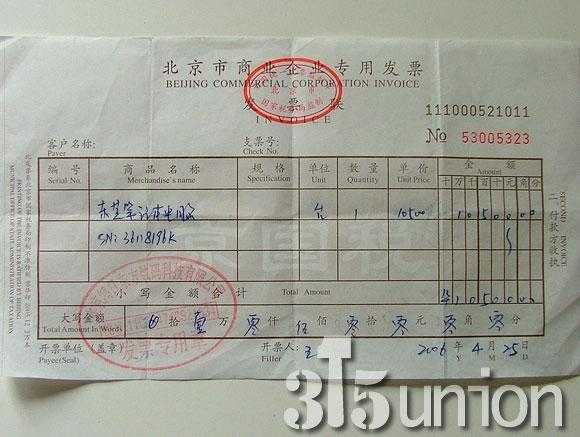 北京市商业企业专用发票
BEIJING COMMERCIAL CORPORATION INVOICE
发票联
INVOICE
北京市
国家税务局监制
111000521011
№ 53005323
客户名称:
Payer
支票号:
Check No.
编号 商品名称 规格 单位 数量 单价 金额
Serial No. Merchandise's name Specification Unit Quantity Unit Price Amount
十 万 千 百 十 元 角 分
东芝笔记本电脑 台 1 10500 1 0 5 0 0 0 0
SN: 36118196K
小写金额合计 Total Amount ¥ 1 0 5 0 0 0 0
大写金额 拾 壹 万 零 仟 伍 佰 零 拾 零 元 零 角 零 分
Total Amount In Words
开票单位(盖章) 开票人: 王 2006 4 25 日
Payee(Seal) Filler Y M D
发票专用章
二、付款方收执
SECOND INVOICE
315union